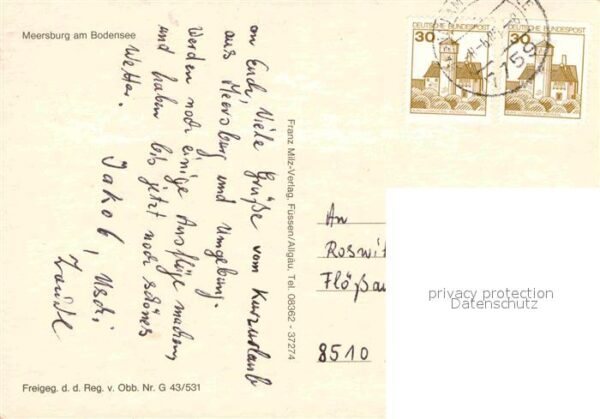 Meersburg am Bodensee
an Euch, Viele Grüße vom Kurzurlaub
aus Meersburg und Umgebung.
Werden noch einige Ausflüge machen,
und haben bis jetzt noch schönes
Wetter.
Jakob, Uschi
Franz Milz-Verlag, Füssen/Allgäu, Tel. 08362 - 37274
Freigeg. d. d. Reg. v. Obb. Nr. G 43/531
DEUTSCHE BUNDESPOST
30
DEUTSCHE BUNDESPOST
30
7759
An
Roswi
Flößau
8510
privacy protection
Datenschutz